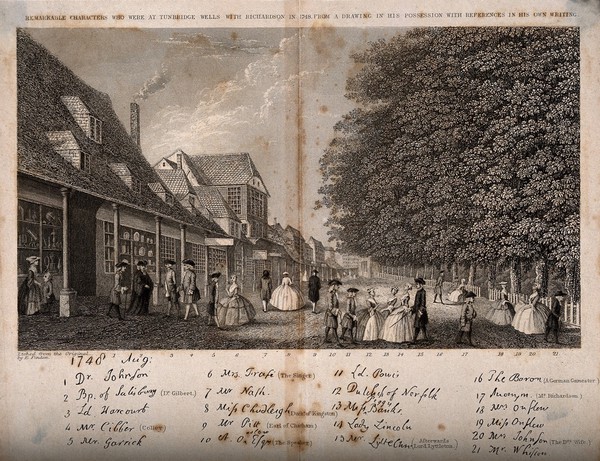 REMARKABLE CHARACTERS WHO WERE AT TUNBRIDGE WELLS WITH RICHARDSON IN 1748. FROM A DRAWING IN HIS POSSESSION WITH REFERENCES IN HIS OWN WRITING
Etched from the Original
1748 Aug:
1 Dr. Johnson
2 Bp. of Salisbury (Dr. Gilbert.)
3 Ld Harcourt
4 Mr. Cibber (Colley)
5 Mr. Garrick
6 Mrs. Frasi (The Singer)
7 Mr Nash.
8 Miss Chudleigh
9 Mr Pitt (Earl of Chatham)
10 A. Onslow Esqr. (The Speaker)
11 Ld. Powis
12 Dutchess of Norfolk
13 Miss Banks
14 Lady Lincoln
15 Mr Lyttelton (Afterwards Lord Lyttleton.)
16 The Baron (A German Gamester.)
17 Anonym (Mr. Richardson.)
18 Mrs Onslow
19 Miss Onslow
20 Mrs Johnson (The Drs. Wife.)
21 Mr Whiston